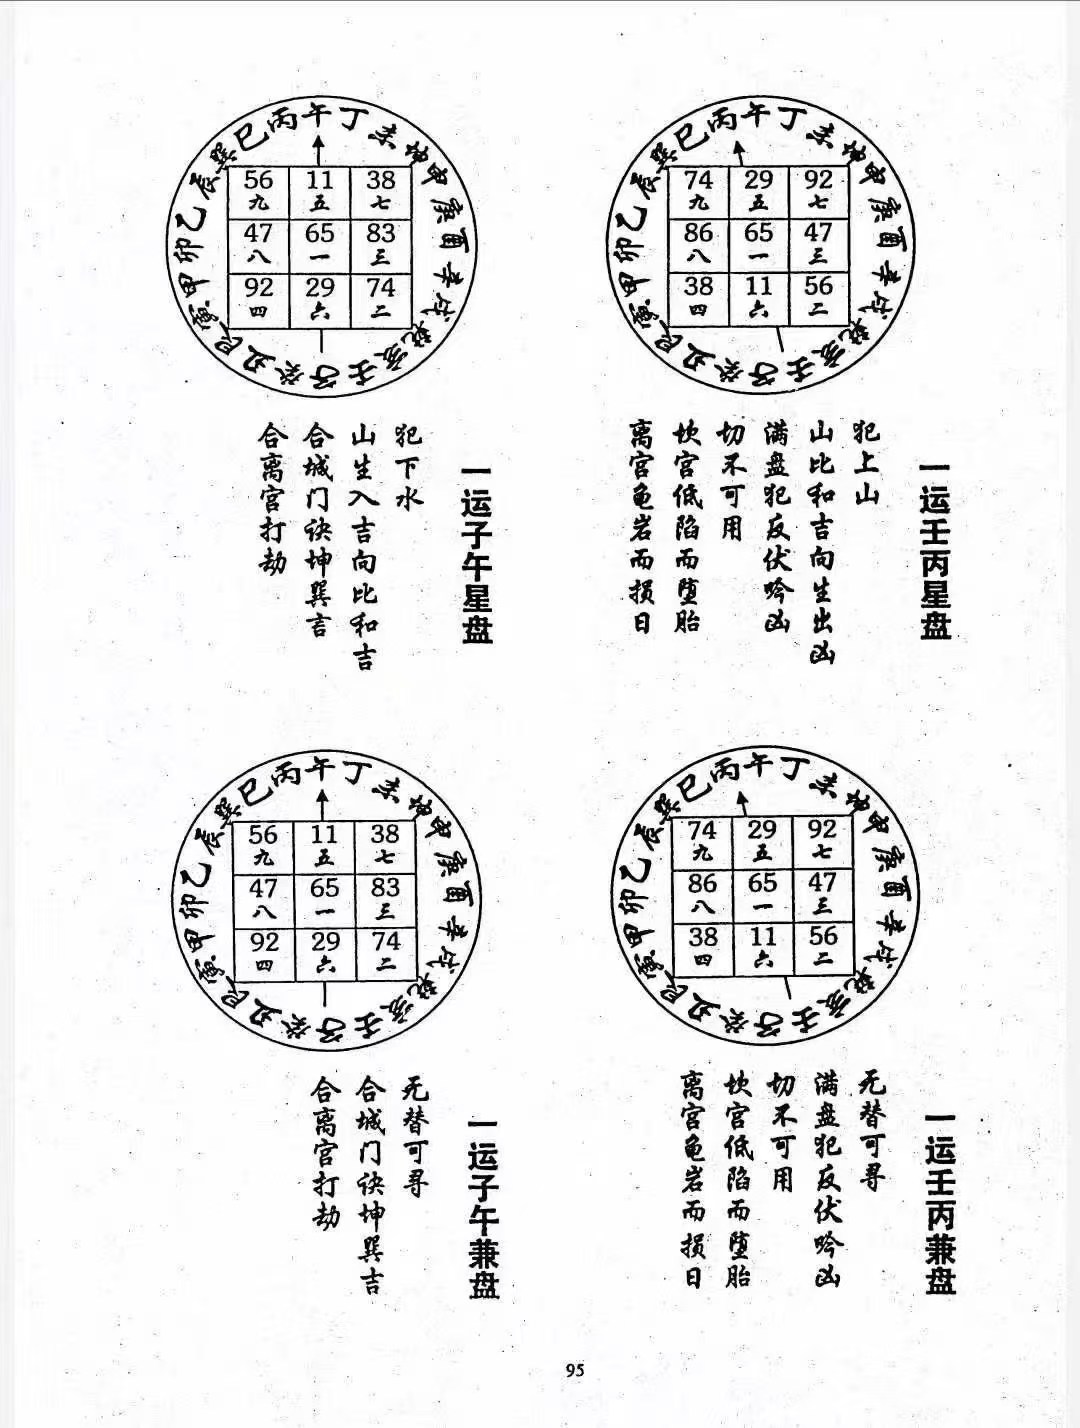 巽巳丙午丁未坤申庚酉辛戌乾亥壬子癸丑艮寅甲卯乙辰
74 29 92
九 五 七
86 65 47
八 一 三
38 11 56
四 六 二
一运壬丙星盘
犯上山
山比和吉向生出凶
满盘犯反伏吟凶
切不可用
坎宫低陷而堕胎
离宫龟岩而损日
巽巳丙午丁未坤申庚酉辛戌乾亥壬子癸丑艮寅甲卯乙辰
56 11 38
九 五 七
47 65 83
八 一 三
92 29 74
四 六 二
一运子午星盘
犯下水
山生入吉向比和吉
合城门诀坤巽言
合离宫打劫
巽巳丙午丁未坤申庚酉辛戌乾亥壬子癸丑艮寅甲卯乙辰
74 29 92
九 五 七
86 65 47
八 一 三
38 11 56
四 六 二
一运壬丙兼盘
无替可寻
满盘犯反伏吟凶
切不可用
坎宫低陷而堕胎
离宫龟岩而损日
巽巳丙午丁未坤申庚酉辛戌乾亥壬子癸丑艮寅甲卯乙辰
56 11 38
九 五 七
47 65 83
八 一 三
92 29 74
四 六 二
一运子午兼盘
无替可寻
合城门诀坤巽吉
合离宫打劫
95